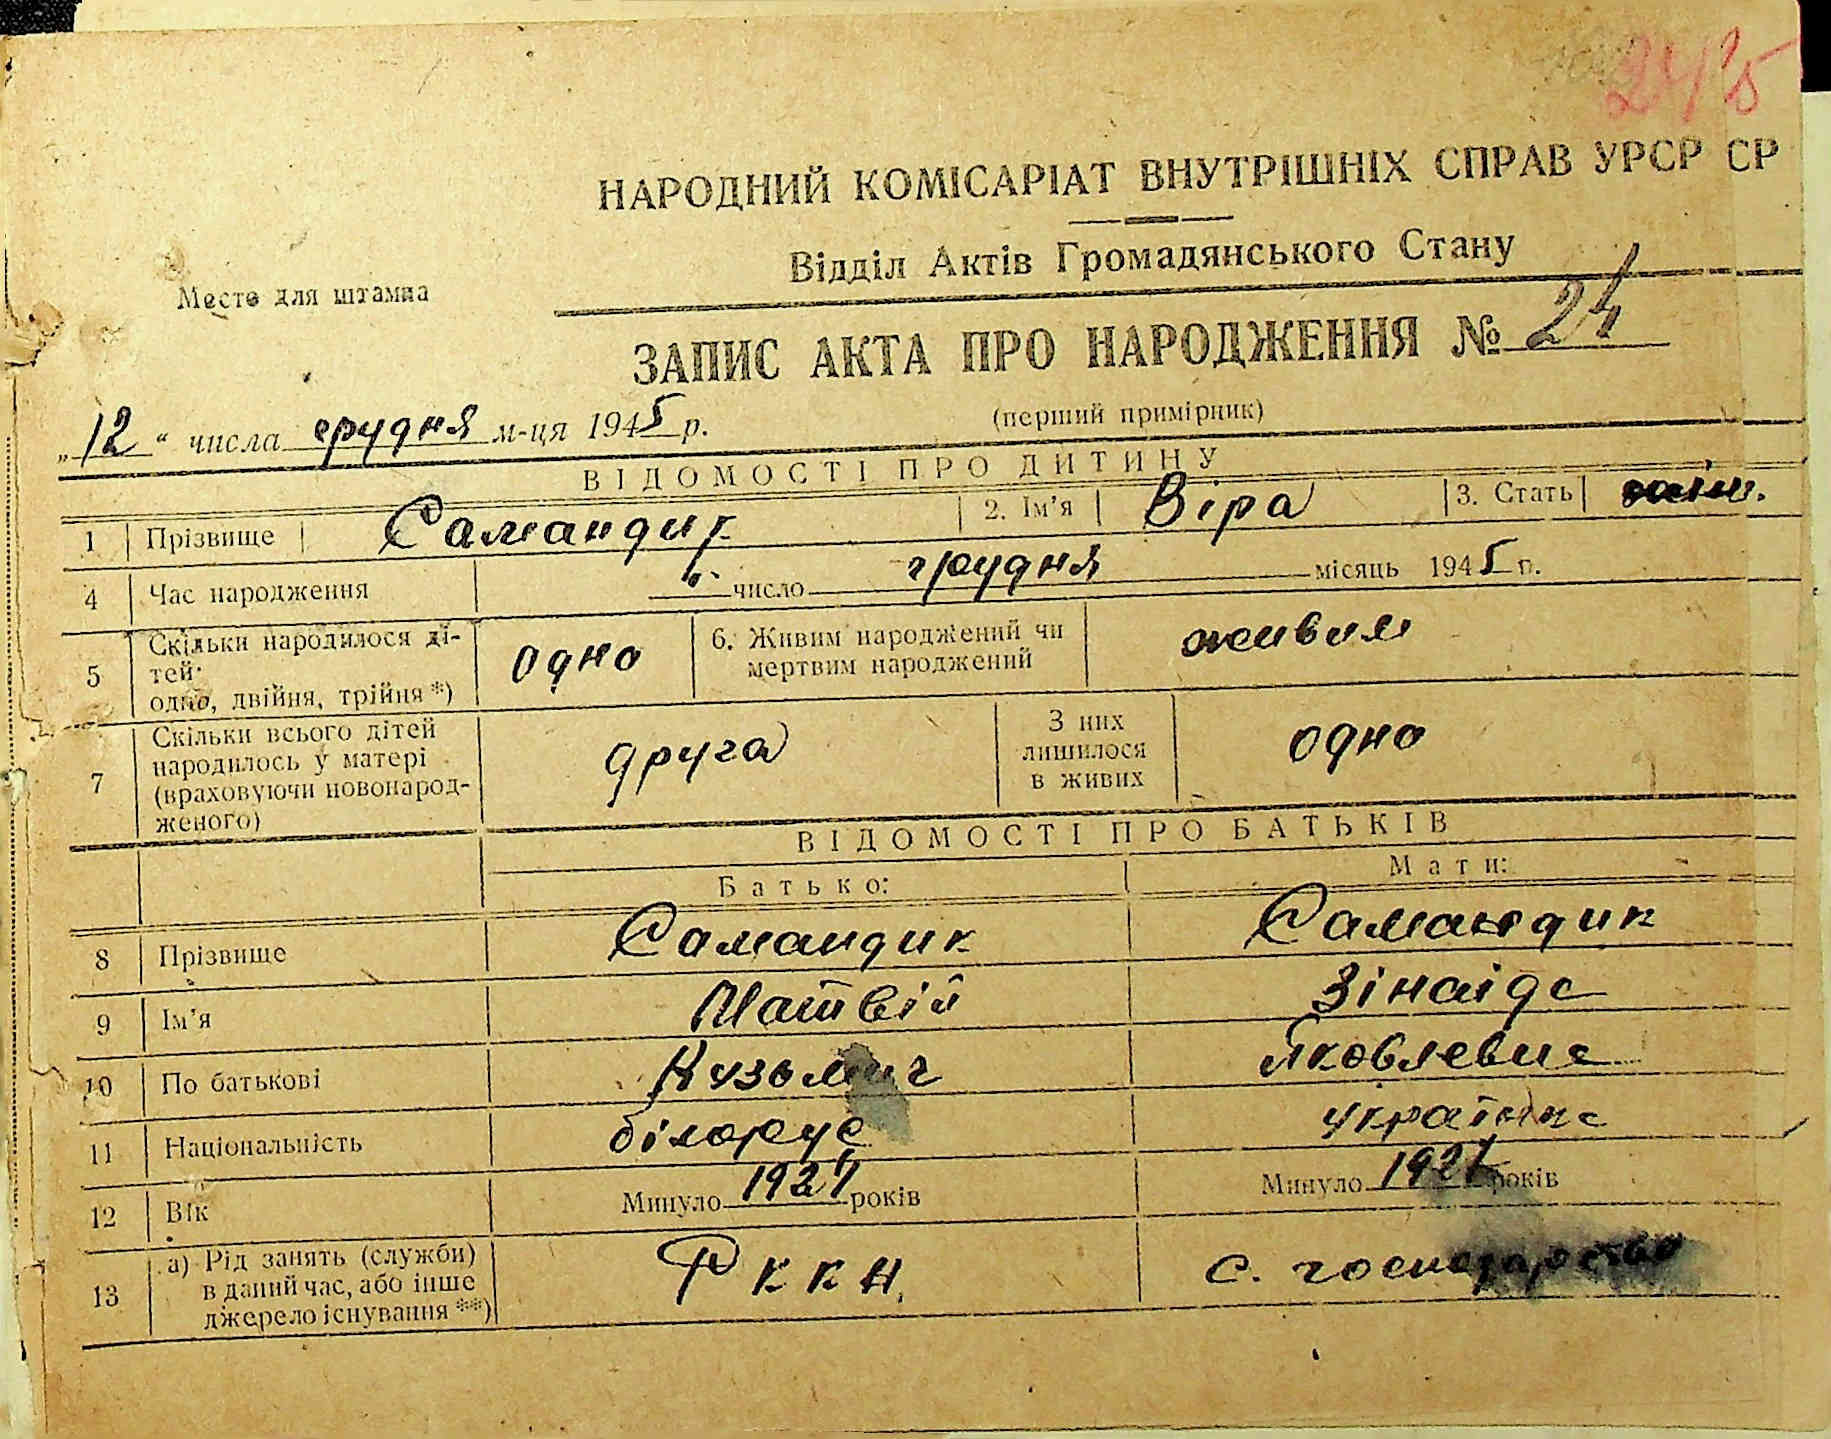 245
НАРОДНИЙ КОМІСАРІАТ ВНУТРІШНІХ СПРАВ УРСР СР
Відділ Актів Громадянського Стану
Место для штампа
ЗАПИС АКТА ПРО НАРОДЖЕННЯ № 24
(перший примірник)
„12“ числа грудня м-ця 1945 р.
ВІДОМОСТІ ПРО ДИТИНУ
1 Прізвище Самандик 2. Ім'я Віра 3. Стать
4 Час народження число грудня місяць 1945 р.
5 Скільки народилося ді-
тей:
одно, двійня, трійня *) одно 6. Живим народжений чи
мертвим народжений живим
7 Скільки всього дітей
народилось у матері
(враховуючи новонарод-
женого) друга З них
лишилося
в живих одно
ВІДОМОСТІ ПРО БАТЬКІВ
Батько: Мати:
8 Прізвище Самандик Самандик
9 Ім'я Матвій Зінаіда
10 По батькові Кузьмич Яковлевна
11 Національність білорус українка
12 Вік Минуло 1927 років Минуло років
13 а) Рід занять (служби)
в даний час, або інше
джерело існування **) РККА с. господарство